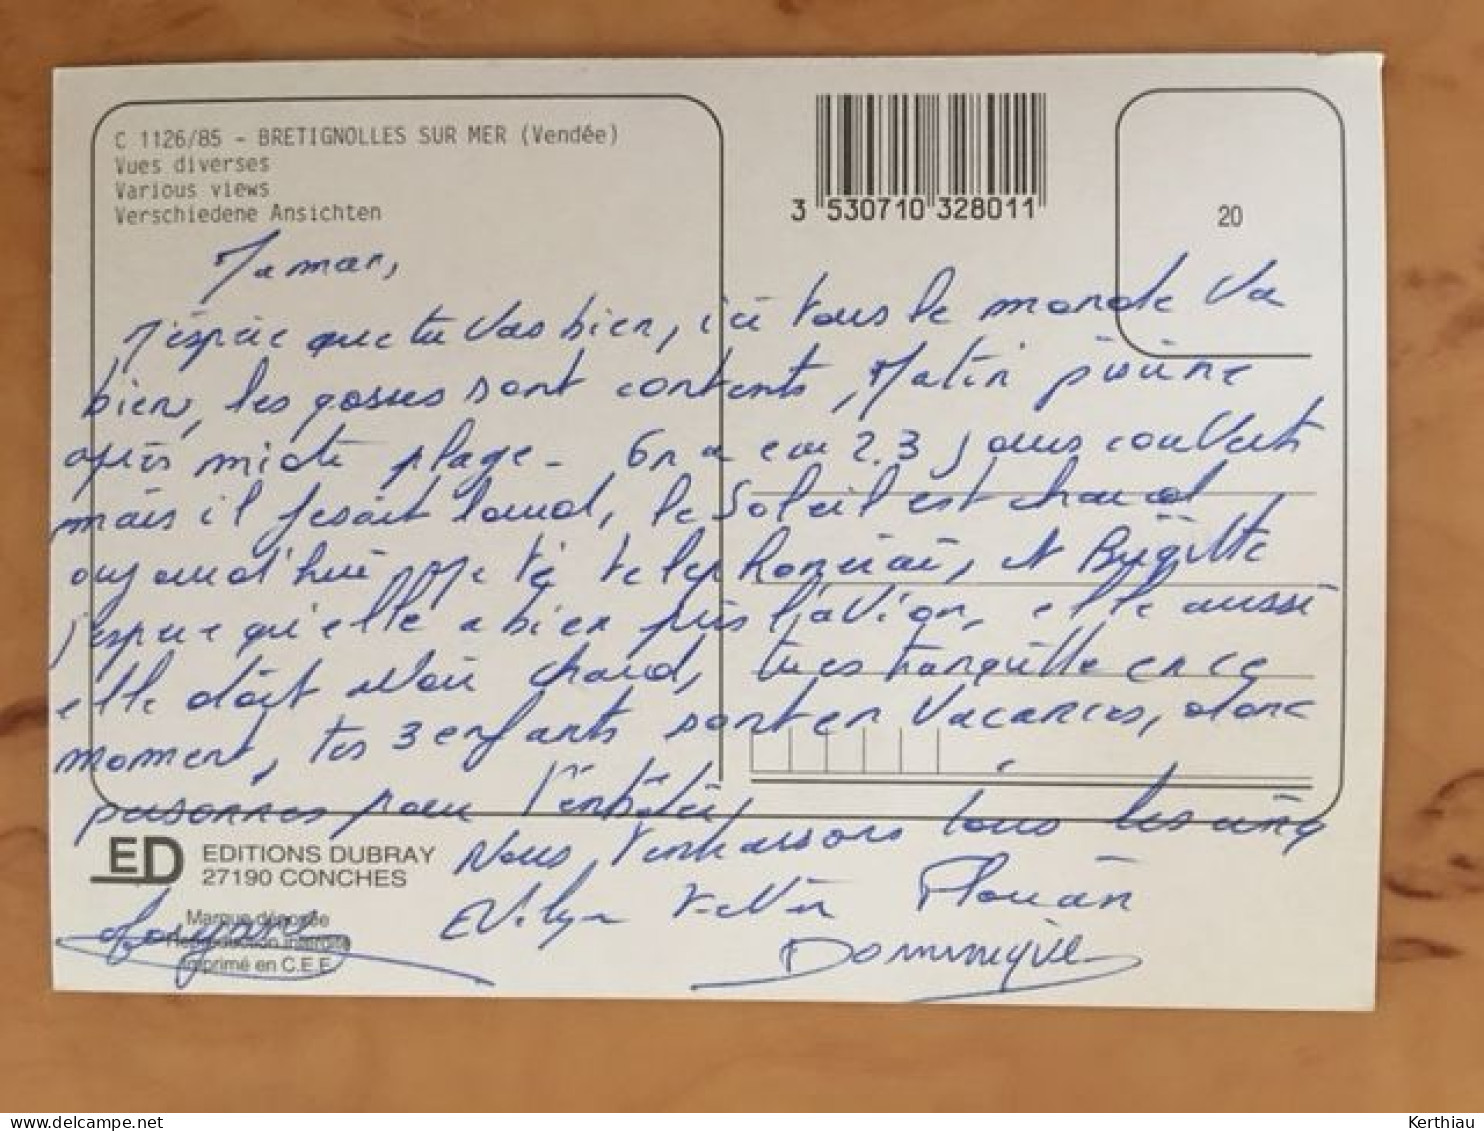 C 1126/85 - BRETIGNOLLES SUR MER (Vendée)
Vues diverses
Various views
Verschiedene Ansichten
3 530710 328011
20
Maman,
J'espère que tu vas bien, ici tous le monde va
bien, les gosses sont contents, Matin piscine
après midi plage - On a eu 2.3 jours couverts
mais il fesait lourd, le Soleil est chaud
aujourd'hui, Me té telephonerai, et Brigitte
j'espère qu'elle a bien pris l'avion, elle aussi
elle doit avoir chaud, tu es tranquille en ce
moment, tes 3 enfants sont en vacances, donc
personnes pour t'embêter,
Nous t'embrassons tous les cinq
ED EDITIONS DUBRAY
27190 CONCHES
Marque déposée
Reproduction interdite
Imprimé en C.E.E.
Evelyn Florian
Dominique
Kerthiau